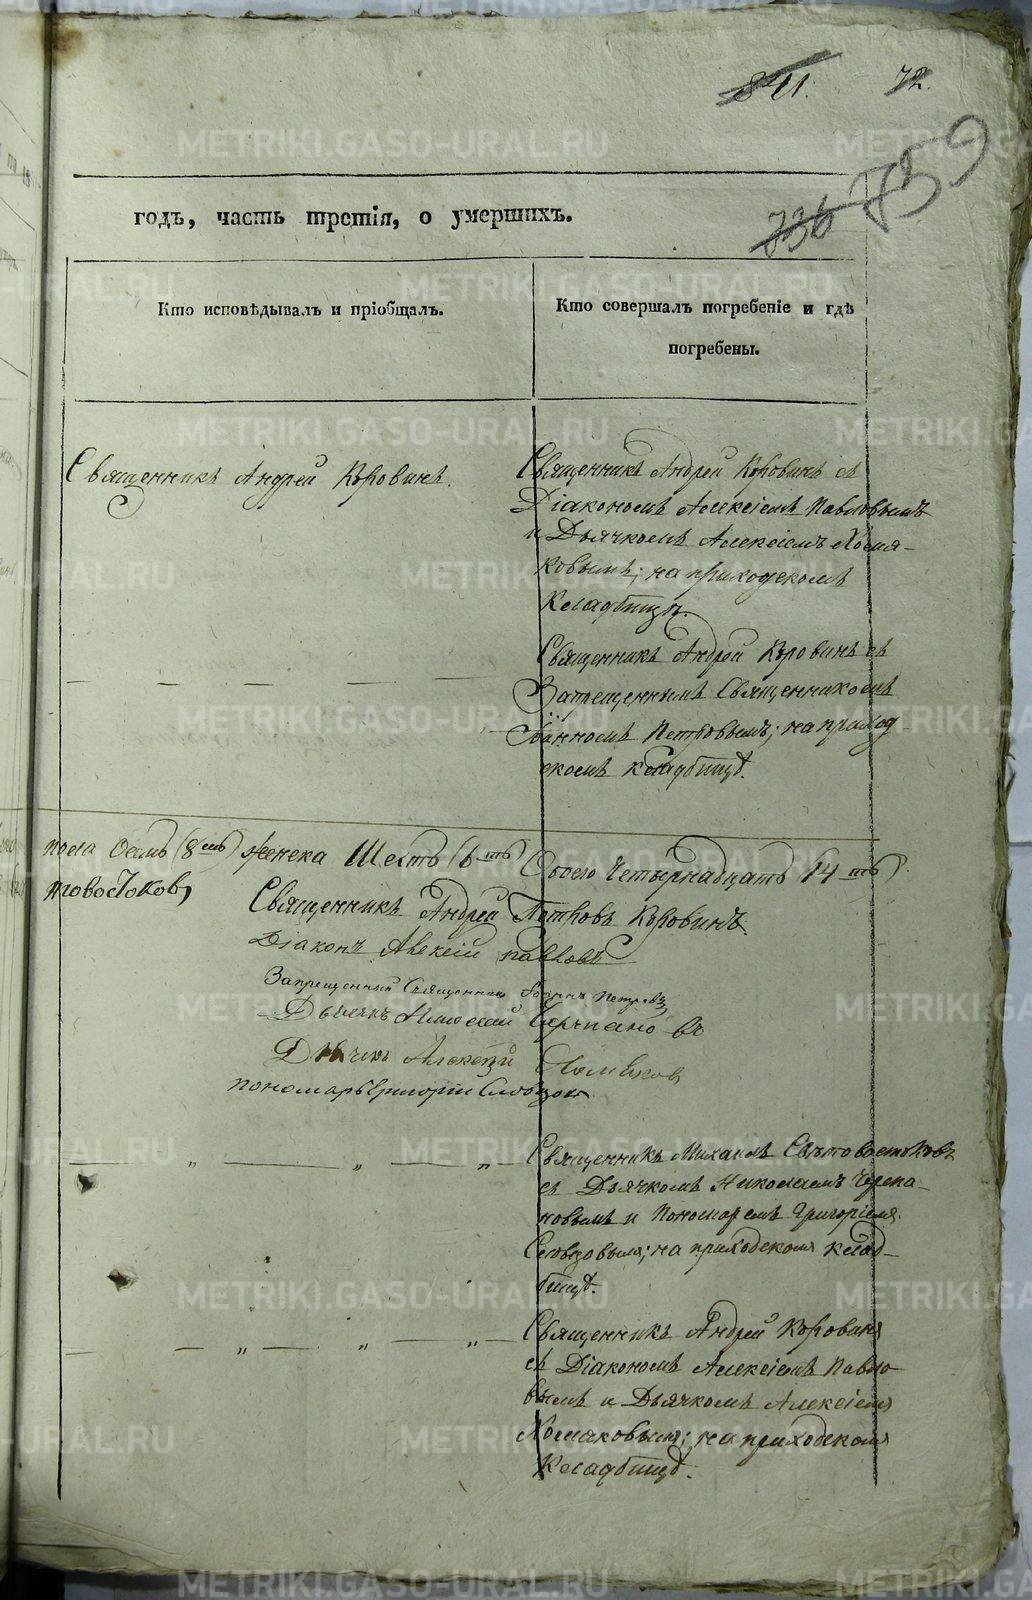 841. 72.
736 759
годъ, часть третія, о умершихъ.
Кто исповѣдывалъ и пріобщалъ.
Кто совершалъ погребеніе и гдѣ
погребены.
Священникъ Андрей Коровинъ.
Священникъ Андрей Коровинъ съ
Діакономъ Алексіемъ Павловымъ
и Дьячкомъ Алексіемъ Хомя-
ковымъ; на приходскомъ
Кладбищѣ.
Священникъ Андрей Коровинъ съ
Запрещеннымъ Священникомъ
Іоанномъ Петровымъ; на приход
скомъ кладбищѣ.
пола Осмь (8мь) женска Шесть (6ть) Обоего Четырнадцать 14ть).
товостоковъ
Священникъ Андрей Петровъ Коровинъ.
Діаконъ Алексій Павловъ
Запрещенный Священникъ Іоаннъ Петровъ
Дьячекъ Николай Черепановъ
Дьячекъ Алексей Хомяковъ
пономарь Григорій Словцовъ
Священникъ Михаилъ Свѣтовостоковъ
съ Дьячкомъ Николаемъ Черепа-
новымъ и Пономаремъ Григоріемъ
Словцовымъ; на приходскомъ клад-
бищѣ.
Священникъ Андрей Коровинъ
съ Діакономъ Алексіемъ Павло-
вымъ и Дьячкомъ Алексіемъ
Хомяковымъ; на приходскомъ
Кладбищѣ.
METRIKI.GASO-URAL.RU